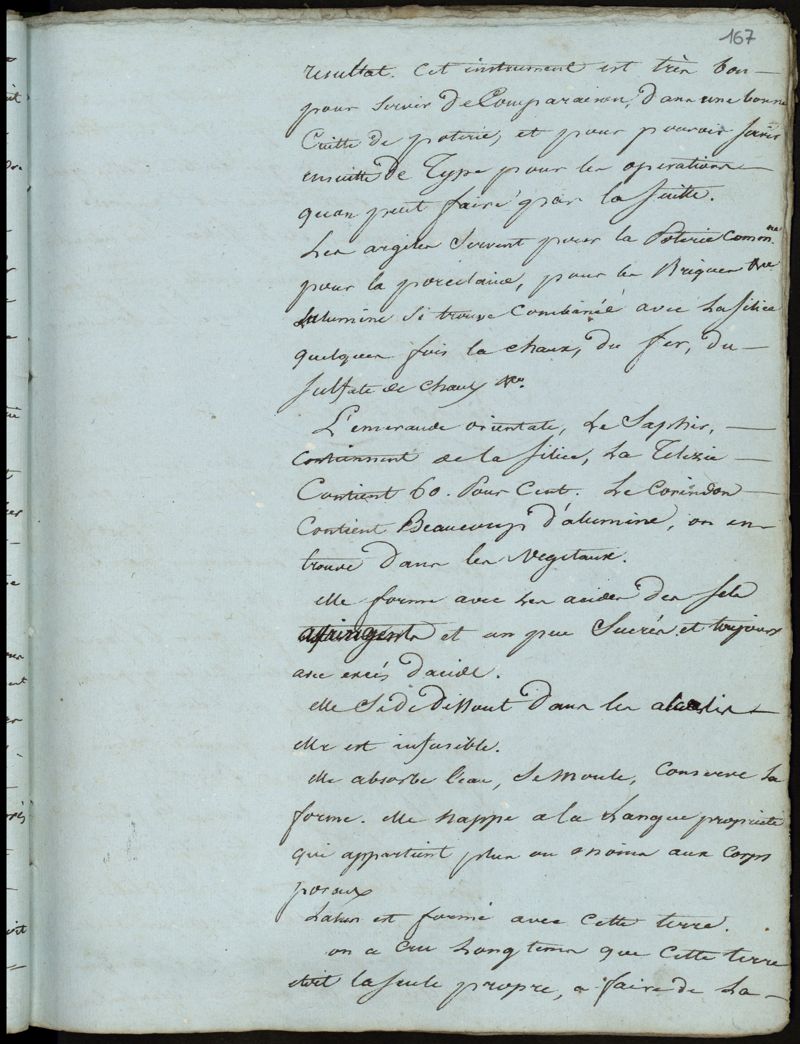 167
resultat. Cet instrument est très bon
pour servir de Comparaison, dans une bonne
Cuitte de poterie, et pour pouvoir servir
ensuitte de Type pour les operations
quon peut faire par la suitte.
Les argiles servent pour la Poterie Comm.ne
pour la porcelaine, pour les Briques &ca
Lalumine Si trouve Combinée avec La silice
quelques fois la chaux, du fer, du
sulfate de chaux &ca.
L'emeraude orientale, Le Saphir,
Contiennent de la silice, La Telezie
Contient 60. Pour Cent. Le Corindon
Contient Beaucoup d'alumine, on en
trouve dans les Vegetaux.
elle forme avec Les acides des sels
astringents et un peu Sucrés et toujours
avec excés dacide.
elle Se dissout dans les alcalis
elle est infusible.
elle absorbe l'eau, Se moule, Conserve La
forme. elle happe a la Langue propriété
qui appartient plus ou moins aux Corps
poraux
Lalun est formé avec Cette terre.
on a Cru Longtems que Cette terre
etoit la seule propre, a faire de La